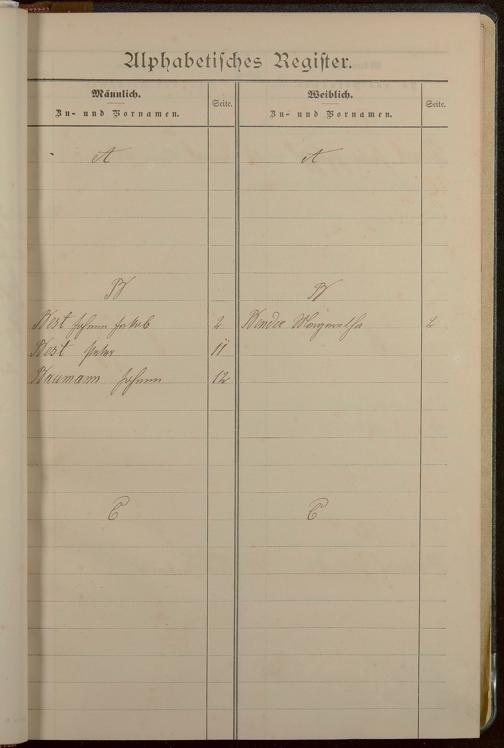 Alphabetisches Register.
Männlich.
Zu- und Vornamen.
Seite.
Weiblich.
Zu- und Vornamen.
Seite.
A
A
B
B
Best Johann Jakob 2
Bender Margaretha 2
Best Peter 11
Baumann Johann 12
C
C